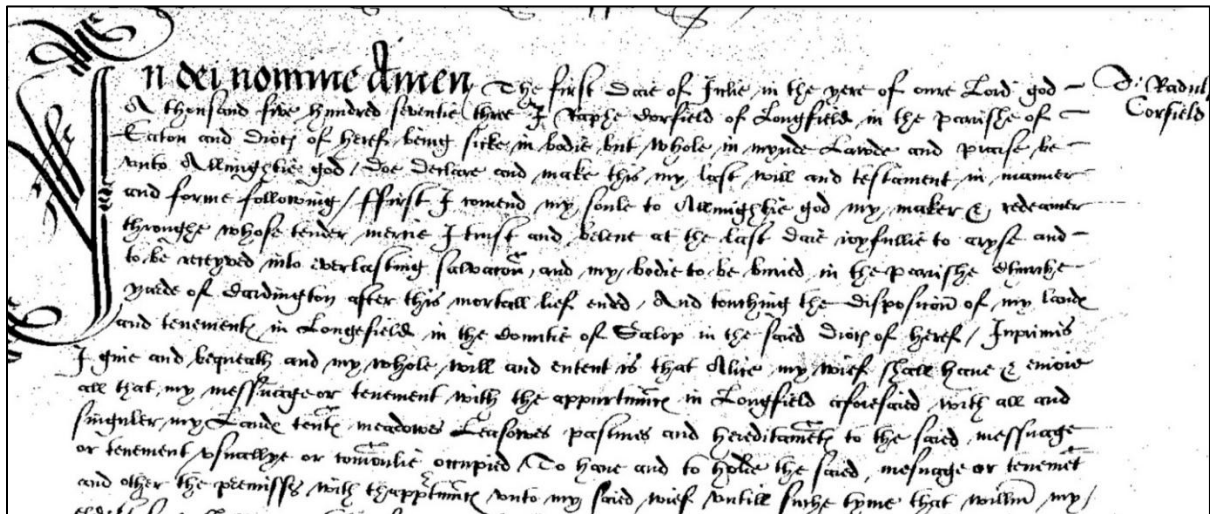 In dei nomine Amen The first daie of Julie in the yere of oure Lord god
T: Radulphi Corfield
A thousand five hundred seventie three I Raphe Corfield of Longfield in the parishe of
Eaton and dioces of heref being sicke in bodie but whole in mynde Lawde and praise be
unto Allmightie god / doe declare and make this my last will and testament in manner
and forme following / ffirst I comend my soule to Allmightie god my maker & redeamer
throughe whose tender mercie I trust and beleve at the last daie ioyfullie to aryse and
to be receyved into everlasting salvacon, and my bodie to be buried in the parishe churche
yarde of Cardington after this mortall lief ended / And touching the disposicon of my landes
and tenementes in Longefield in the Countie of Salop in the saied dioces of heref / Inprimis
I give and bequeath and my whole will and entent is that Alice my wief shall have & enioie
all that my messuage or tenement with the appurtnances in Longfield aforesaied with all and
singuler my Landes tentes meadowes Leasowes pastures and hereditamentes to the saied messuage
or tenement usuallye or comonlie occupied To have and to holde the saied mesuage or tenemet
and other the premisses with thappurtnances unto my saied wief untill suche tyme that willm my